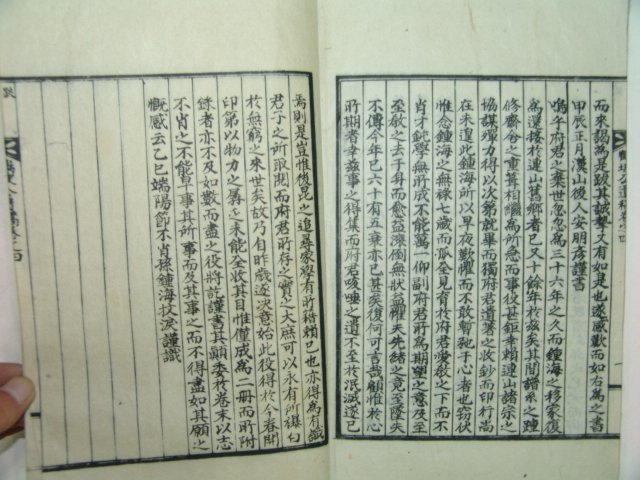 而來謁焉是跋其誠摯又有如是也遂感歎而如右爲之書
甲辰正月漢山後人安明彦謹書
嗚乎府君以棄世忽忽爲三十六年之久而鍾海之移家復
爲還接於連山舊鄕者已又十餘年於玆矣其間譜系之踵
修齋舍之重葺相繼爲所急而事役甚鉅幸賴連山諸宗之
協謀殫力得以次第就畢而獨府君遺著之收鈔而印行尚
在未遑此鍾海所以早夜歎懼而不敢暫弛于心者也窃伏
惟念鍾海之無祿七歲而孤全見育於府君愛敎之下而不
肖才鈍學無所成不能萬一仰副府君所爲期望之意及至
至敎之去于斗而愈益濩倒無狀益懼夫先緖之竟至墜失
不傳今年已六十有五衰亦已甚矣復何可言哉顧惟於心
所期者幸玆事之得集而府君咳唾之遺不至於泯滅遂已
焉則是豈惟後昆之追尋家學有所籍賴已也亦得爲有識
君子之所取閱而府君所存之實之大庶可以永有所據
於無窮之來世矣故乃自昨歲遂決意始此役得於今春開
印第以物力之算之未能全收其目惟僅成爲二冊而所附
錄者亦不及如數而盡之役將訖謹書其顚委於卷末以志
不肖之不能早事其所事而及其事之而不得盡如其願之
慨感云乙巳端陽節不肖孫鍾海抆淚謹識